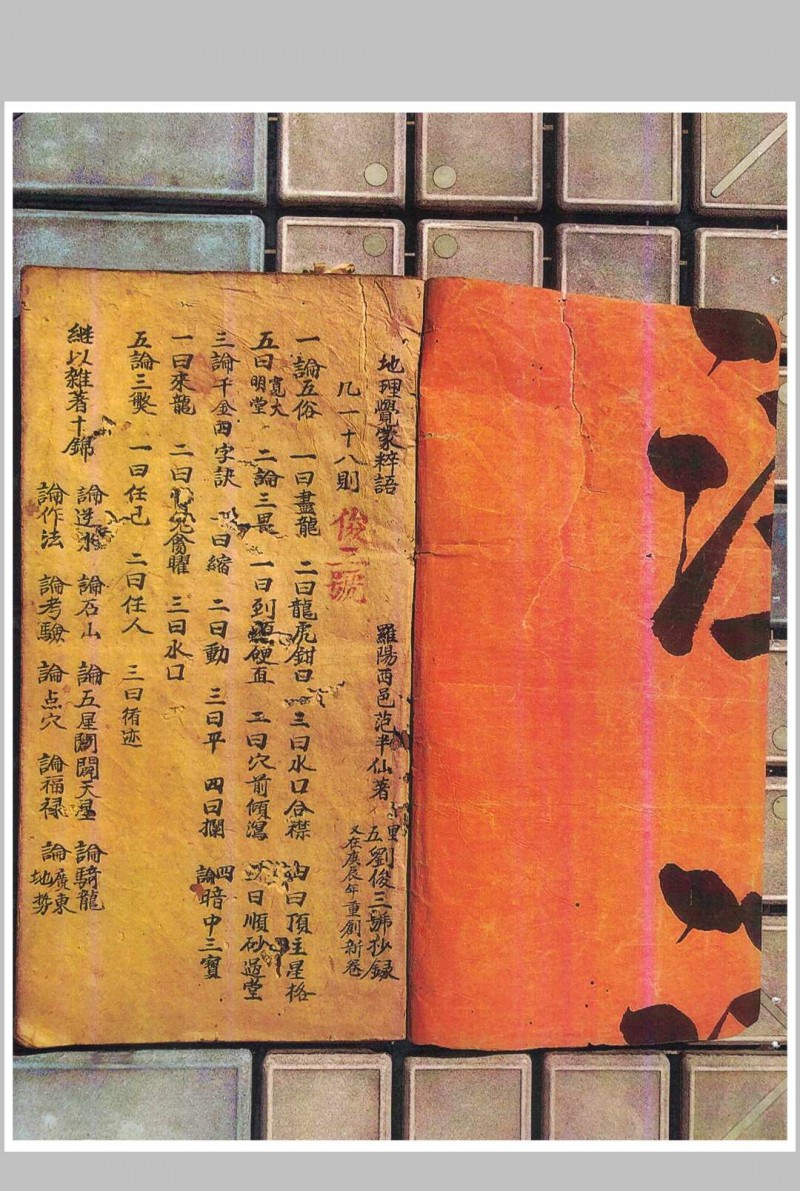 地理覺蒙粹語
羅陽西邑范半仙著
里五劉俊三號抄録
又在庚辰年重創新卷
凡一十八則
俊三號
一論五俗 一曰盡龍 二曰龍虎鉗 三曰水口合襟 四曰頂主星格
五曰明堂寬大 二論三畏 一曰到頭硬直 二曰穴前傾瀉 三曰順砂過堂
三論千金四字訣 一曰縮 二曰動 三曰平 四曰攔 四論暗中三寶
一曰來龍 二曰禽曜 三曰水口
五論三弊 一曰任己 二曰任人 三曰循迹
継以雜著十錦
論逆水 論石山 論五星關闌天星 論騎龍
論作法 論考驗 論点穴 論福禄 論廣東地勢